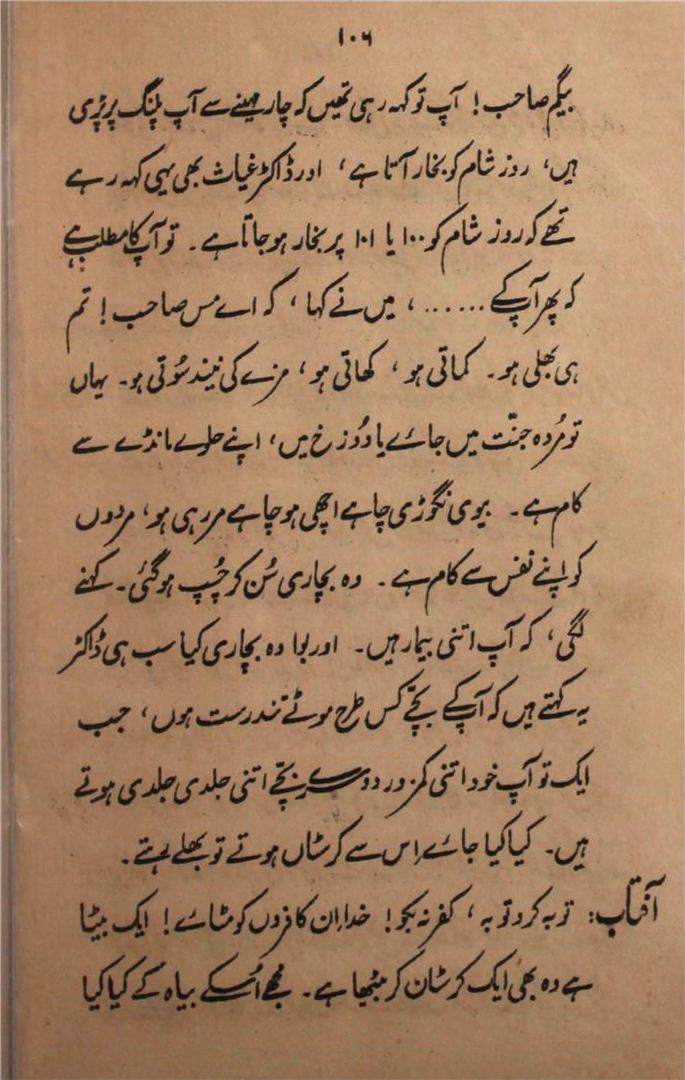 ۱۰۶
بیگم صاحب! آپ تو کہہ رہی تھیں کہ چار مہینے سے آپ پلنگ پر پڑی
ہیں، روز شام کو بخار آتا ہے، اور ڈاکٹر غیاث بھی یہی کہہ رہے
تھے کہ روز شام کو ۱۰۰ یا ۱۰۱ پر بخار ہو جاتا ہے۔ تو آپ کا مطلب ہے
کہ پھر آپ کے ......، میں نے کہا، کہ اے مس صاحب! تم
ہی بھلی ہو۔ کماتی ہو، کھاتی ہو، مزے کی نیند سُوتی ہو۔ یہاں
تو مُردہ جنّت میں جائے یا دُوزخ میں، اپنے حلوے مانڈے سے
کام ہے۔ بیوی نگوڑی چاہے اچھی ہو چاہے مر رہی ہو، مردوں
کو اپنے نفس سے کام ہے۔ وہ بچاری سُن کر چُپ ہو گئی۔ کہنے
لگی، کہ آپ اتنی بیمار ہیں۔ اور بوا وہ بچاری کیا سب ہی ڈاکٹر
یہ کہتے ہیں کہ آپ کے بچّے کس طرح موٹے تندرست ہوں، جب
ایک تو آپ خود اتنی کمزور دوسرے بچّے اتنی جلدی جلدی ہوتے
ہیں۔ کیا کیا جائے اِس سے کرسٹاں ہوتے تو بھلے رہتے۔
آفتاب: توبہ کرو توبہ، کفر نہ بکو! خدا اِن کافروں کو مٹائے! ایک بیٹا
ہے وہ بھی ایک کرسٹان کر بیٹھا ہے۔ مجھے اُسکے بیاہ کے کیا کیا